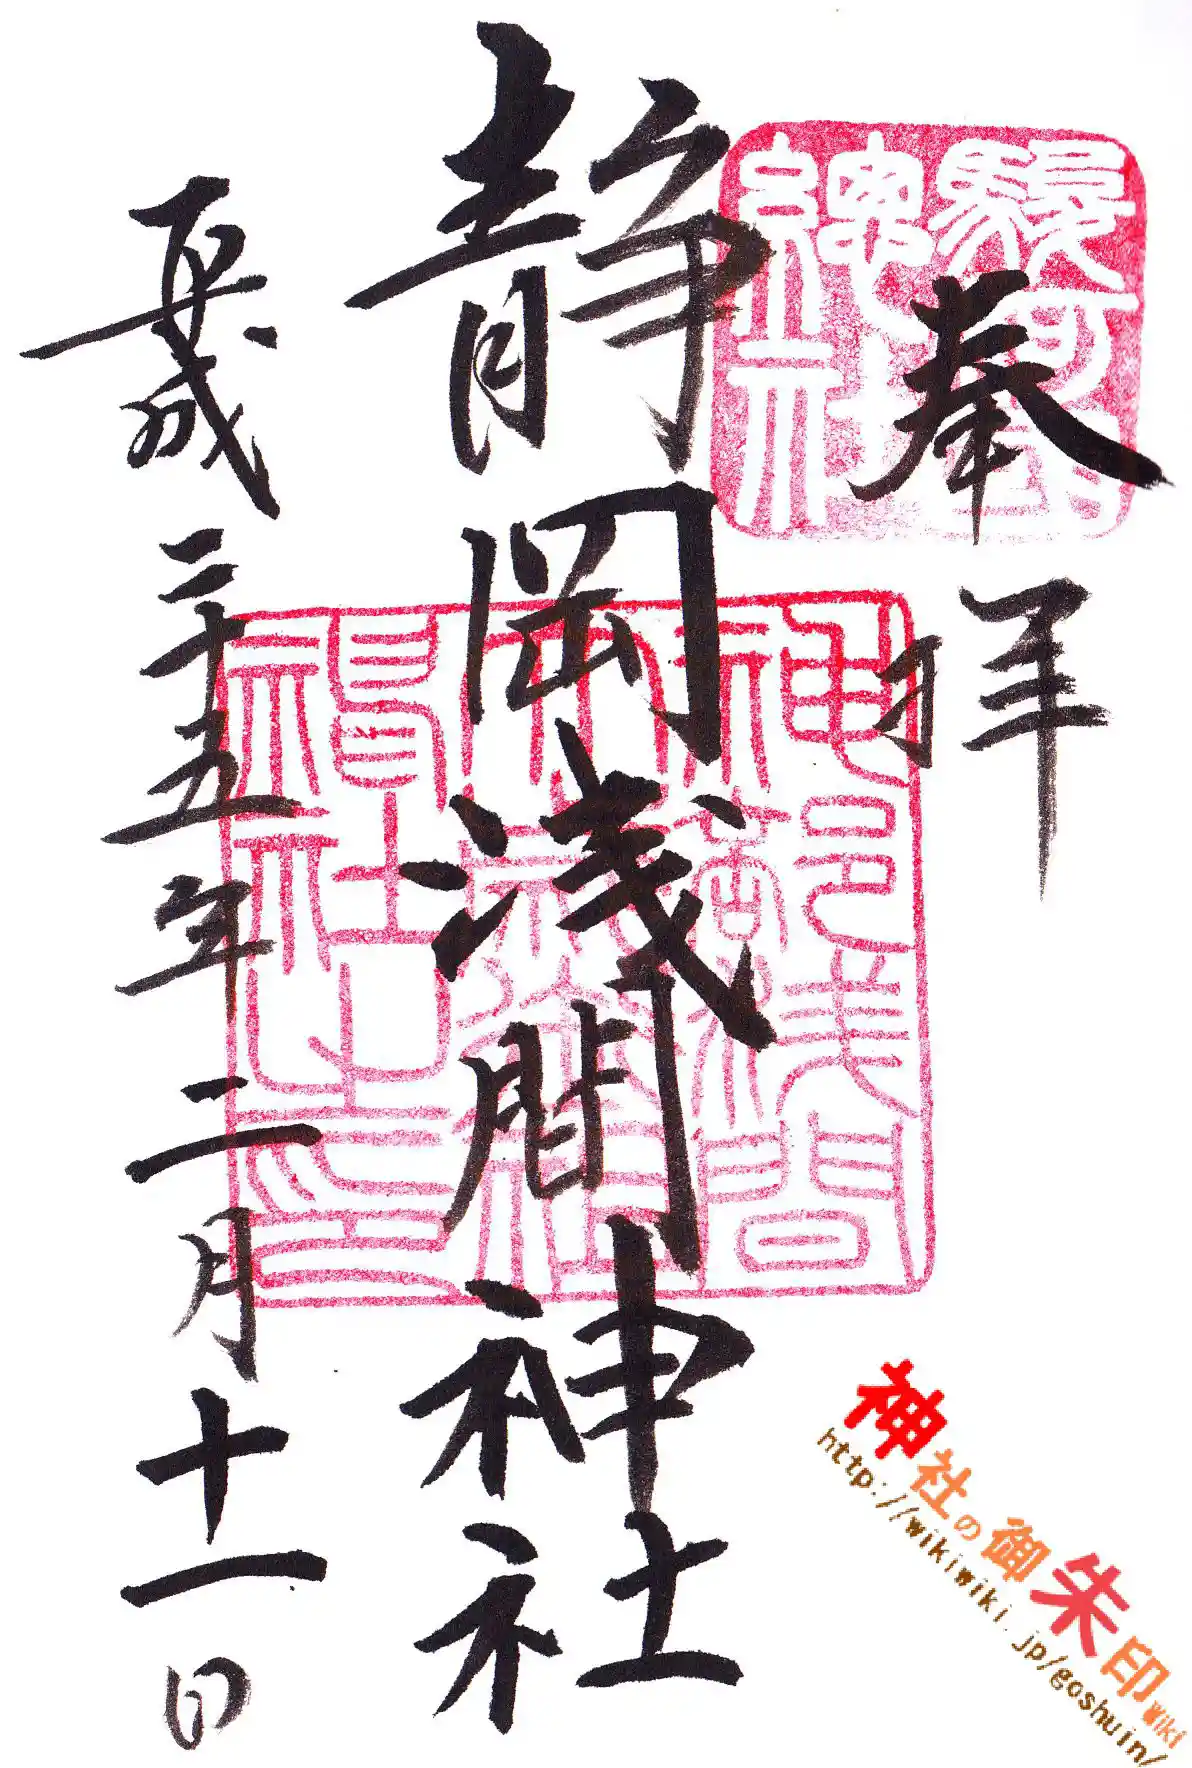 奉拝
静岡浅間神社
平成二十五年二月十一日
神部浅間
大歳御祖
神社之印
神社の御朱印Wiki
http://wikiwiki.jp/goshuin/